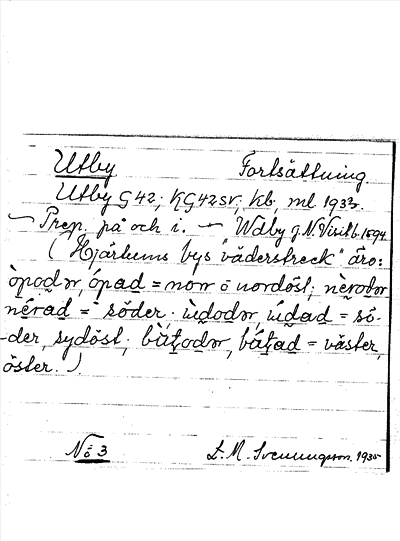 Utby Fortsättning.
Utby G 42; KG42SV; Kb, ml 1933.
— Prep. på och i. — Wdby g. N. Visitb. 1594
(Hjärtums bys "väderstreck" äro:
òpodər, ópad = norr o nordöst; nèrodər
nérad = söder. ùdodər, údad = sö-
-der, sydöst; bàţodər, báţad = väster,
öster.)
No 3 L. M. Svenungsson. 1935